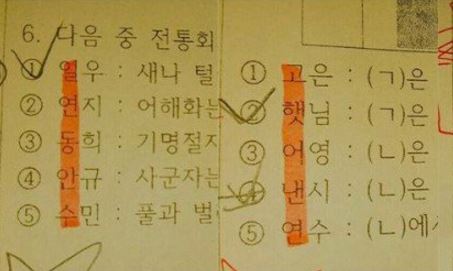 6. 다음 중 전통회
① 일우 : 새나 털
② 연지 : 어해화는
③ 동희 : 기명절지
④ 안규 : 사군자는
⑤ 수민 : 풀과 벌
① 고은 : (ㄱ)은
② 햇님 : (ㄱ)은
③ 어영 : (ㄴ)은
④ 낸시 : (ㄴ)은
⑤ 연수 : (ㄴ)에서